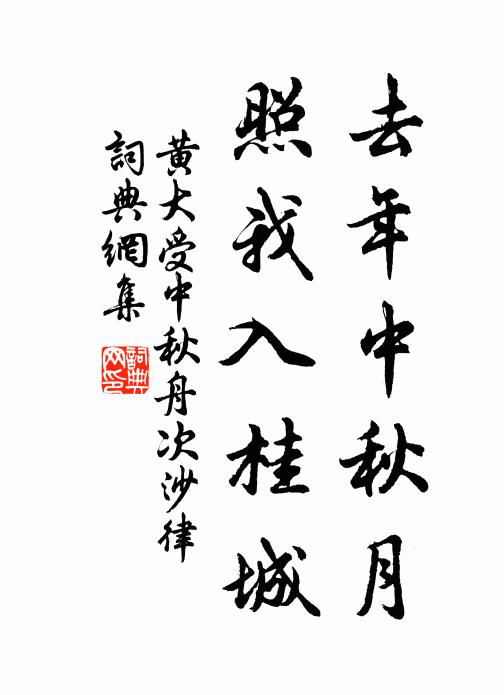 去年中秋月
照我入桂城
黄大受中秋舟次沙律
詞典網集
詞典網印